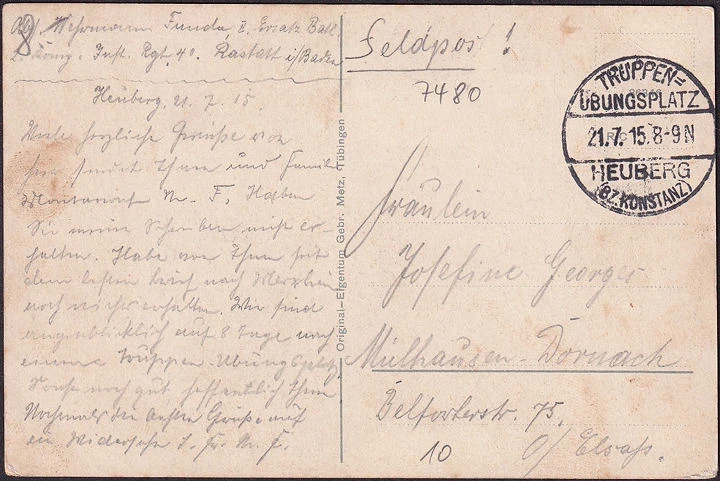 Abs. Wehrmann Funda, II. Ersatz Batl.
2. Komp. Inft. Rgt. 40. Rastatt i/Baden
Heuberg, 21. 7. 15.
Viele herzliche Grüsse von
hier sendet Ihnen und Familie
M. F. Haben
Sie meine Schreiben nicht er-
halten. Habe von Ihnen seit
dem letzten Brief nach
noch nichts erhalten. Wir sind
augenblicklich auf 8 Tage nach
einem Truppen-Übungsplatz.
noch gut hoffentlich Ihnen
Nochmals die besten Grüsse auf
ein Wiedersehn I. Fr. M. F.
Original-Eigentum Gebr. Metz, Tübingen
Feldpost!
7480
TRUPPEN=
ÜBUNGSPLATZ
21.7.15.8-9N
HEUBERG
(BZ.KONSTANZ)
Fräulein
Josefine Georges
Mülhausen-Dornach
Belforterstr. 75.
10
O/ Elsass.